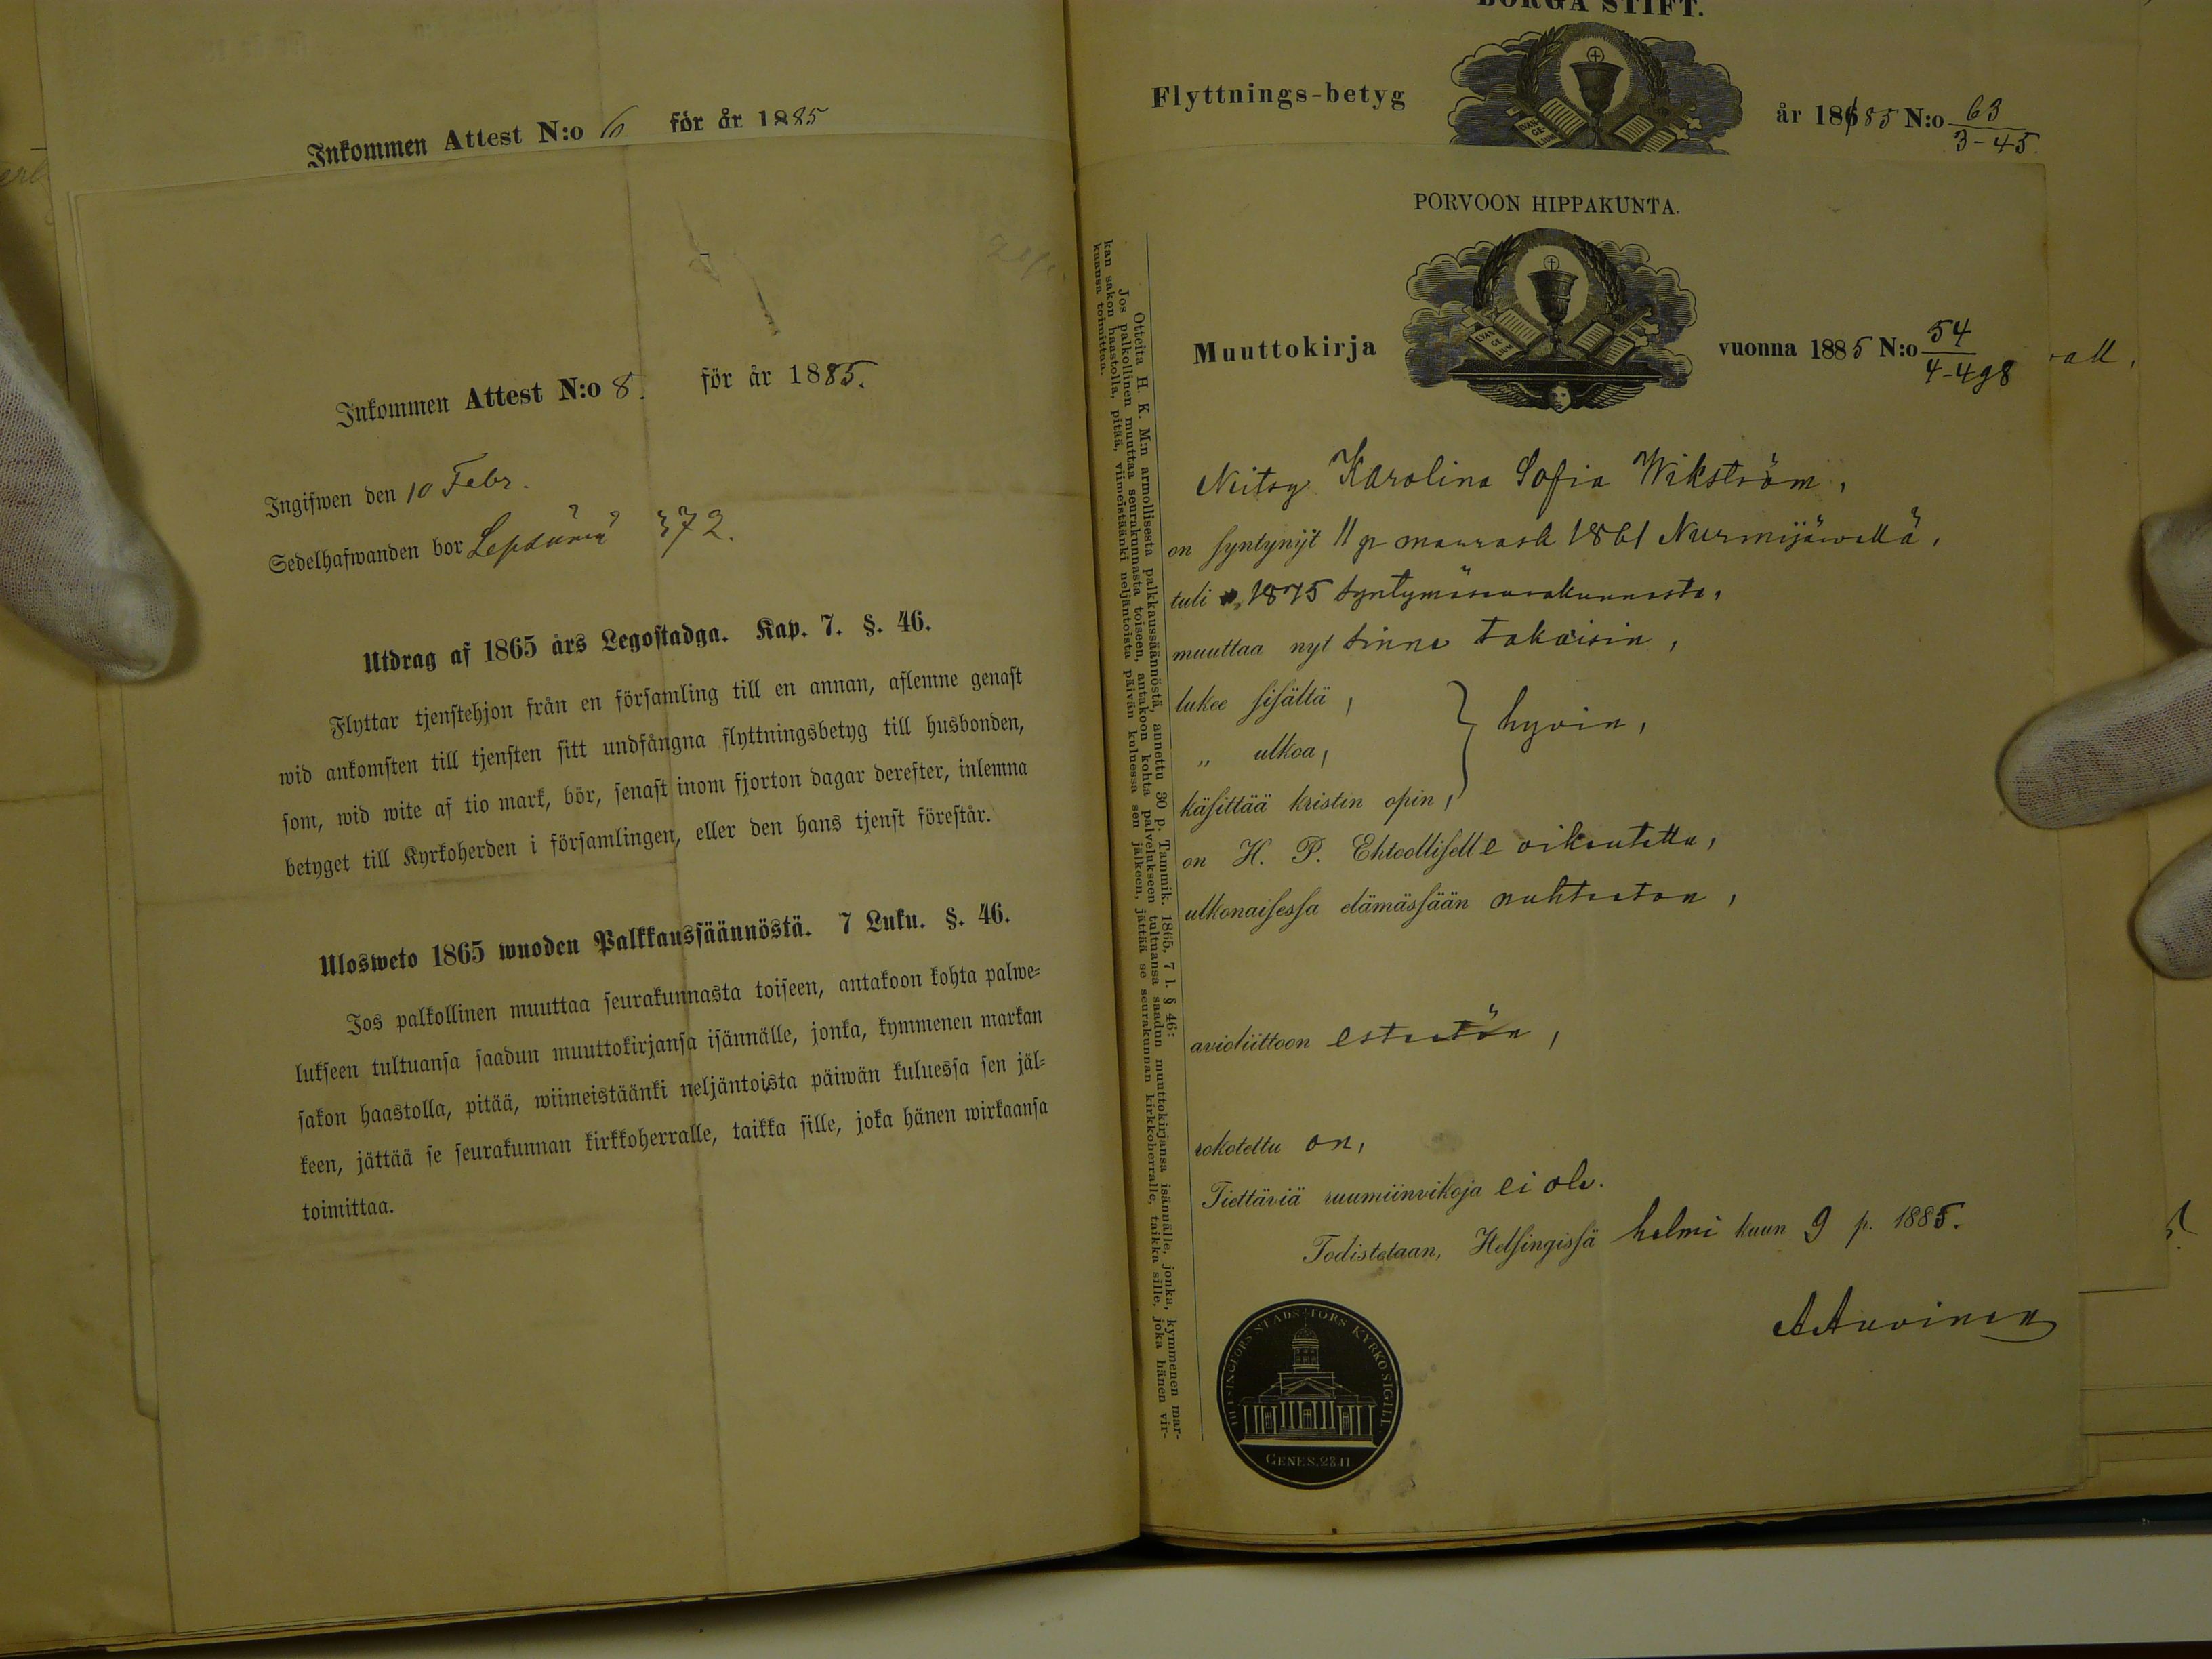 Inkommen Attest N:o 6 för år 1885
Inkommen Attest N:o 8. för år 1885.
Ingifwen den 10 Febr.
Sedelhafwanden bor 372.
Utdrag af 1865 års Legostadga. Kap. 7. §. 46.
Flyttar tjenstehjon från en församling till en annan, aflemne genast
wid ankomsten till tjensten sitt undfångna flyttningsbetyg till husbonden,
som, wid wite af tio mark, bör, senast inom fjorton dagar derefter, inlemna
betyget till Kyrkoherden i församlingen, eller den hans tjenst förestår.
Ulosweto 1865 wuoden Palkkaussäännöstä. 7 Luku. §. 46.
Jos palkollinen muuttaa seurakunnasta toiseen, antakoon kohta palwe-
lukseen tultuansa saadun muuttokirjansa isännälle, jonka, kymmenen markan
sakon haastolla, pitää, wiimeistäänki neljäntoista päiwän kuluessa sen jäl-
keen, jättää se seurakunnan kirkkoherralle, taikka sille, joka hänen wirkaansa
toimittaa.
BORGÅ STIFT.
Flyttnings-betyg år 1885 N:o 63
3-45.
EVAN-
GE-
LIUM
PORVOON HIPPAKUNTA.
EVAN
GE
LIUM
Muuttokirja vuonna 1885 N:o 54
4-498
Otteita H. K. M:n armollisesta palkkaussäännöstä, annettu 30 p. Tammik. 1865, 7 l. § 46:
Jos palkollinen muuttaa seurakunnasta toiseen, antakoon kohta palvelukseen tultuansa saadun muuttokirjansa isännälle, jonka, kymmenen mar-
kan sakon haastolla, pitää, viimeistäänki neljäntoista päivän kuluessa sen jälkeen, jättää se seurakunnan kirkkoherralle, taikka sille, joka hänen vir-
kaansa toimittaa.
Neitsy Karolina Sofia Wikström,
on syntynyt 11 p marrask 1861 Nurmijäwellä,
tuli 1875 syntymäseurakunnasta,
muuttaa nyt sinne takaisin,
lukee sisältä,
„ ulkoa, } hyvin,
käsittää kristin opin,
on H. P. Ehtoolliselle oikeutettu,
ulkonaisessa elämässään nuhteeton,
avioliittoon esteetön,
rokotettu on,
Tiettäviä ruumiinvikoja ei ole.
Todistetaan, Helsingissä helmi kuun 9 p. 1885.
A Auvinen
HELSINGFORS STADS TORS KYRKO SIGILL
GENES. 28.17